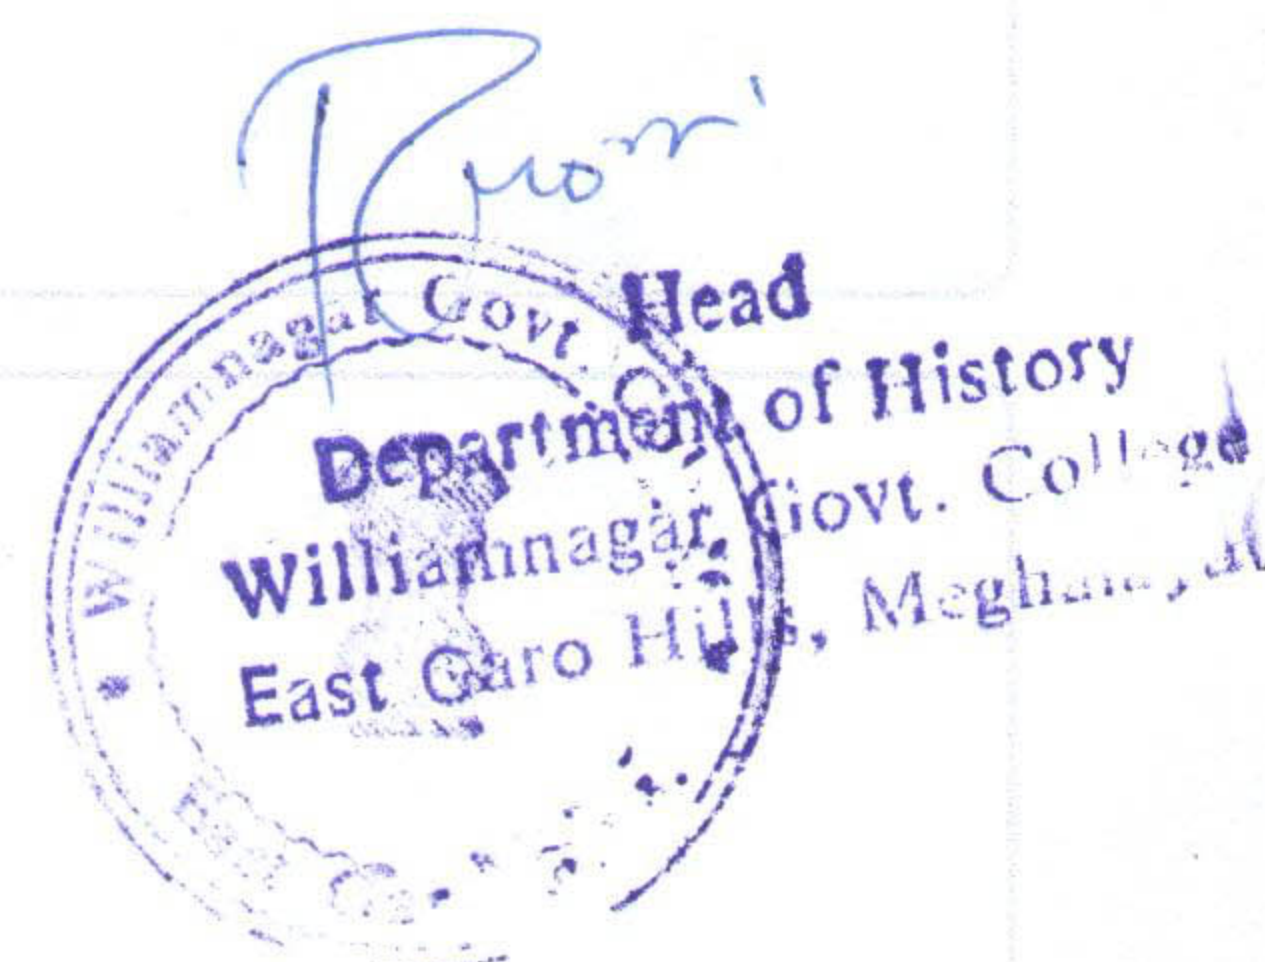 Williamnagar Govt.
Head
Department of History
Williamnagar Govt. College
East Garo Hills, Meghalaya
East